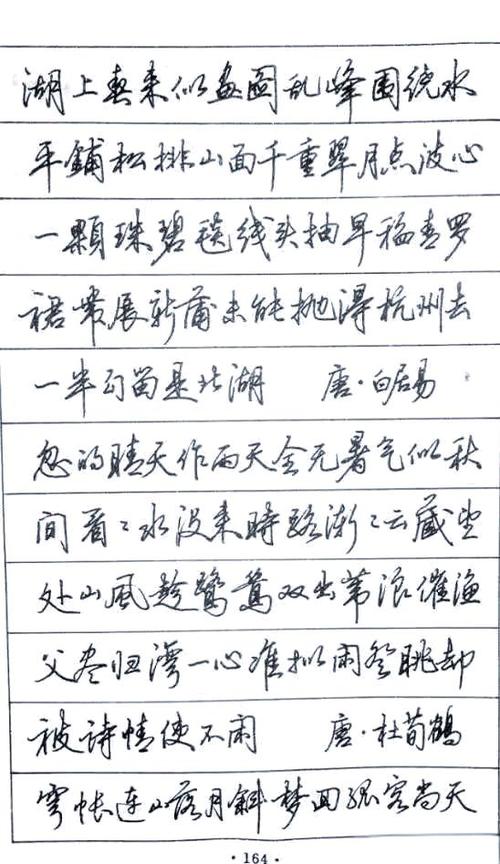 湖上春来似画图乱峰围绕水
平铺松排山面千重翠月点波心
一颗珠碧毯线头抽早稻青罗
裙带展新蒲未能抛得杭州去
一半勾留是此湖 唐·白居易
忽的晴天作雨天全无暑气似秋
间看〻水没来时路渐〻云藏望
处山风趁鹭鸶双出苇浪催渔
父尽归湾一心准拟闲登眺却
被诗情使不闲 唐·杜荀鹤
穹帐连山落月斜梦回孤客尚天
·164·